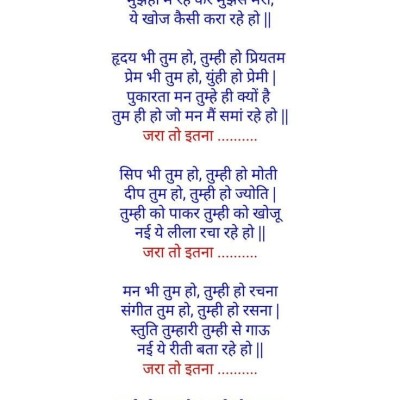 ये खोज कैसी करा रहे हो ||
हृदय भी तुम हो, तुम्ही हो प्रियतम
प्रेम भी तुम हो, युंही हो प्रेमी |
पुकारता मन तुम्हे ही क्यों है
तुम ही हो जो मन मैं समां रहे हो ||
जरा तो इतना ..........
सिप भी तुम हो, तुम्ही हो मोती
दीप तुम हो, तुम्ही हो ज्योति |
तुम्ही को पाकर तुम्ही को खोजू
नई ये लीला रचा रहे हो ||
जरा तो इतना ..........
मन भी तुम हो, तुम्ही हो रचना
संगीत तुम हो, तुम्ही हो रसना |
स्तुति तुम्हारी तुम्ही से गाऊ
नई ये रीती बता रहे हो ||
जरा तो इतना ..........